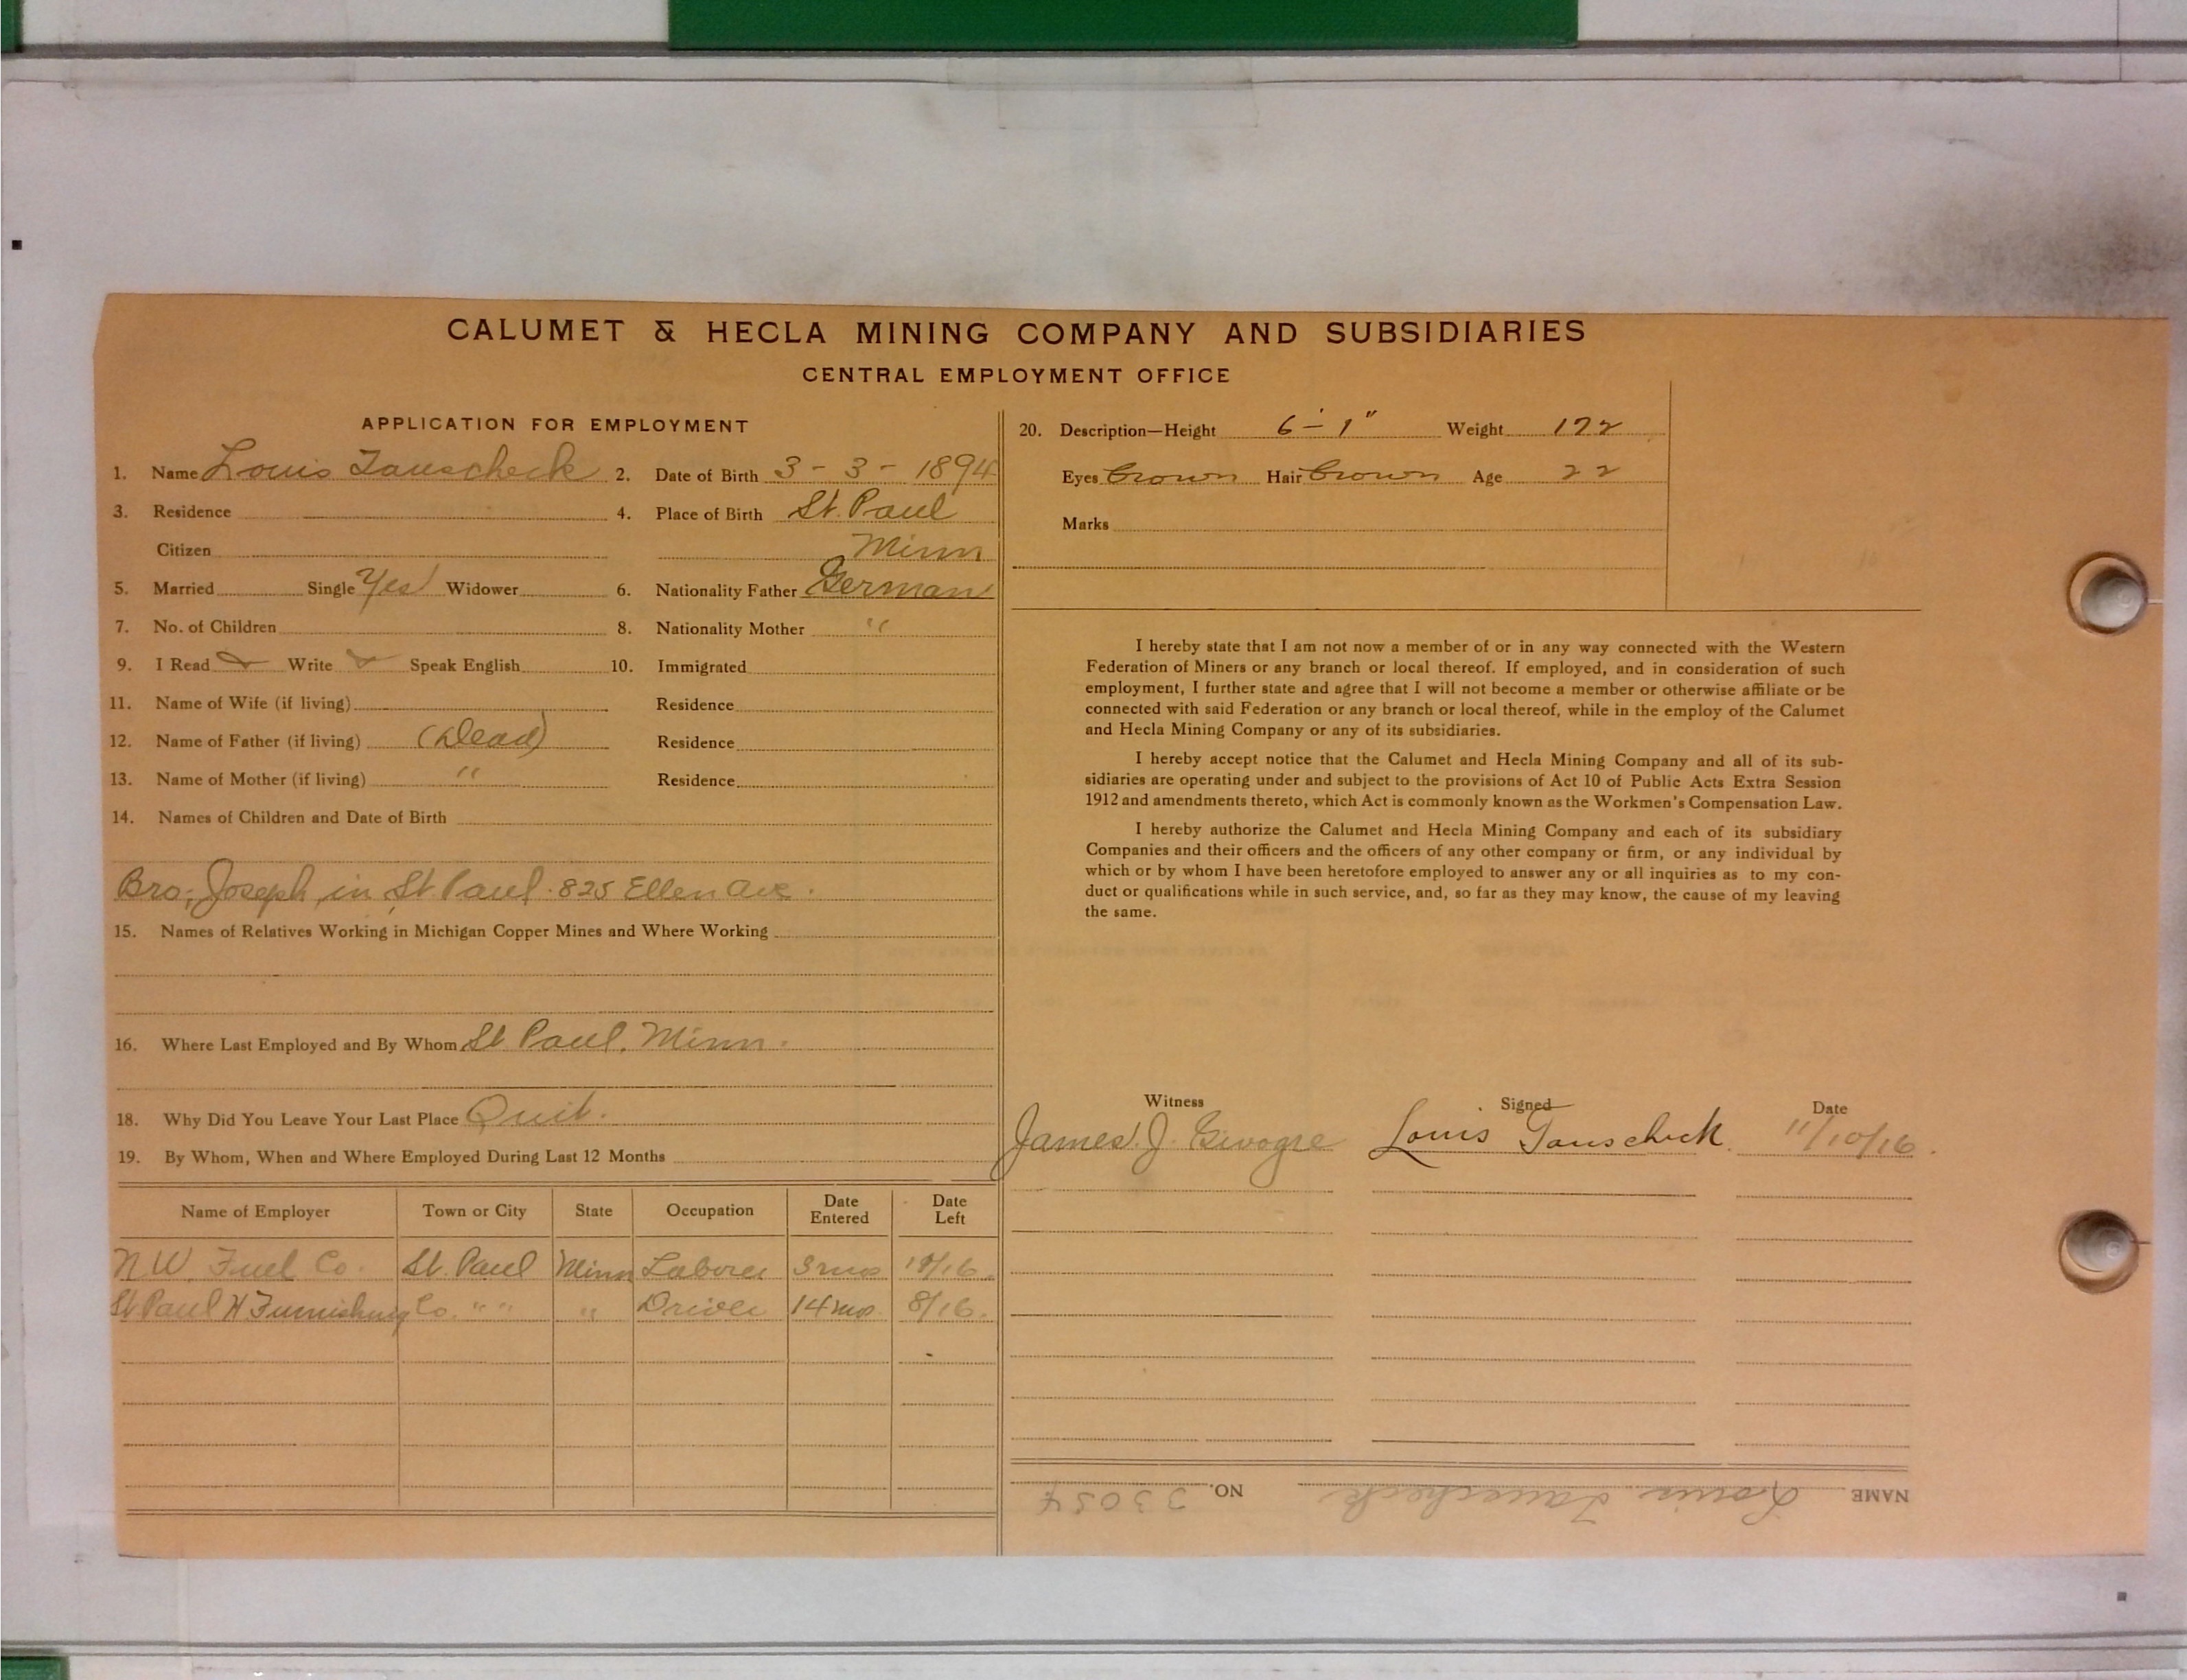 CALUMET & HECLA MINING COMPANY AND SUBSIDIARIES
CENTRAL EMPLOYMENT OFFICE
APPLICATION FOR EMPLOYMENT
1. Name Louis Tauscheck 2. Date of Birth 3 - 3 - 1894
3. Residence 4. Place of Birth St. Paul
Citizen Minn
5. Married Single Yes Widower 6. Nationality Father German
7. No. of Children 8. Nationality Mother "
9. I Read Write Speak English 10. Immigrated
11. Name of Wife (if living) Residence
12. Name of Father (if living) (Dead) Residence
13. Name of Mother (if living) " Residence
14. Names of Children and Date of Birth
Bro; Joseph, in St. Paul. 825 Ellen Ave.
15. Names of Relatives Working in Michigan Copper Mines and Where Working
16. Where Last Employed and By Whom St Paul, Minn.
18. Why Did You Leave Your Last Place Quit.
19. By Whom, When and Where Employed During Last 12 Months
Name of Employer Town or City State Occupation Date Entered Date Left
N.W. Fuel Co. St. Paul Minn Laborer 3 mos
St Paul H Furnishing Co. " " " Driver 14 mos. 8/16.
20. Description—Height 6'-1" Weight 172
Eyes Brown Hair Brown Age 22
Marks
I hereby state that I am not now a member of or in any way connected with the Western
Federation of Miners or any branch or local thereof. If employed, and in consideration of such
employment, I further state and agree that I will not become a member or otherwise affiliate or be
connected with said Federation or any branch or local thereof, while in the employ of the Calumet
and Hecla Mining Company or any of its subsidiaries.
I hereby accept notice that the Calumet and Hecla Mining Company and all of its sub-
sidiaries are operating under and subject to the provisions of Act 10 of Public Acts Extra Session
1912 and amendments thereto, which Act is commonly known as the Workmen's Compensation Law.
I hereby authorize the Calumet and Hecla Mining Company and each of its subsidiary
Companies and their officers and the officers of any other company or firm, or any individual by
which or by whom I have been heretofore employed to answer any or all inquiries as to my con-
duct or qualifications while in such service, and, so far as they may know, the cause of my leaving
the same.
Witness Signed Date
James J. Louis Tauscheck. 11/10/16.
NAME Louis Tauscheck NO. 33054